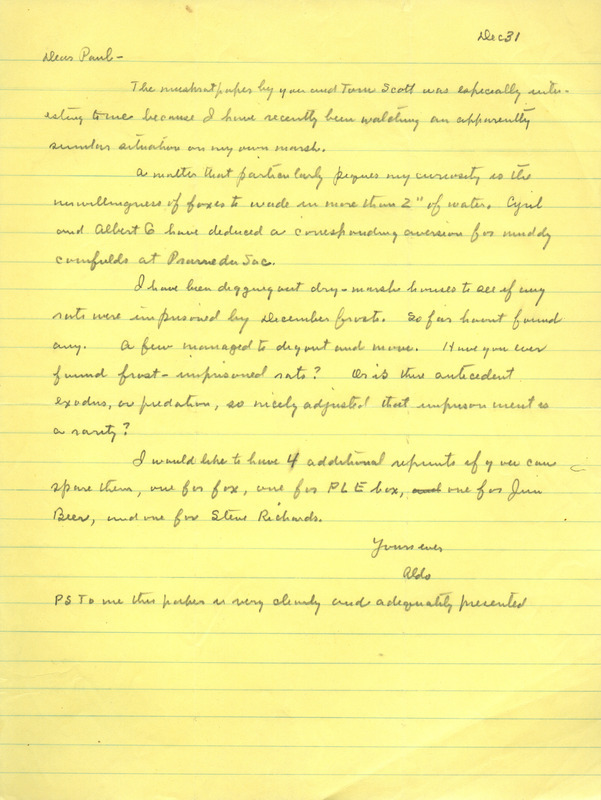 Dec 31
Dear Paul -
The muskrat paper by you and Tom Scott was especially inter-
esting to me because I have recently been watching an apparently
similar situation on my own marsh.
A matter that particularly piques my curiosity is the
unwillingness of foxes to wade in more than 2" of water. Cyril
and Albert G have deduced a corresponding aversion for muddy
cornfields at Prairie du Sac.
I have been digging out dry-marsh houses to see if any
rats were imprisoned by December frosts. So far havnt found
any. A few managed to dig out and move. Have you ever
found frost-imprisoned rats? Or is there antecedent
exodus, or predation, so nicely adjusted that imprisonment is
a rarity?
I would like to have 4 additional reprints if you can
spare them, one for fox, one for PLE box, and one for Jim
Beer, and one for Steve Richards.
Yours ever
Aldo
PS To me this paper is very clearly and adequately presented